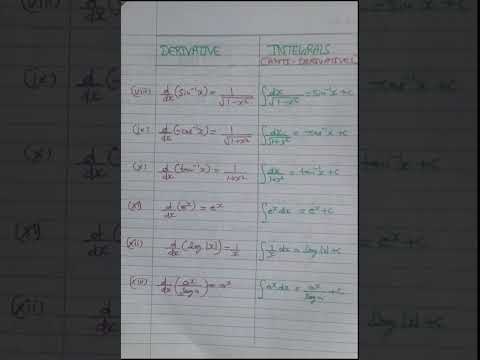 DERIVATIVE INTEGRALS
(ANTI-DERIVATIVES)
(viii) d/dx (sin⁻¹x) = 1/√(1-x²) ∫dx/√(1-x²) = sin⁻¹x + c
(ix) d/dx (-cos⁻¹x) = 1/√(1+x²) ∫dx/√(1+x²) = -cos⁻¹x + c
(x) d/dx (tan⁻¹x) = 1/1+x² ∫dx/1+x² = tan⁻¹x + c
(xi) d/dx (eˣ) = eˣ ∫eˣ dx = eˣ + c
(xii) d/dx (log|x|) = 1/x ∫1/x dx = log|x| + c
(xiii) d/dx (aˣ/log a) = aˣ ∫aˣ dx = aˣ/log a + c